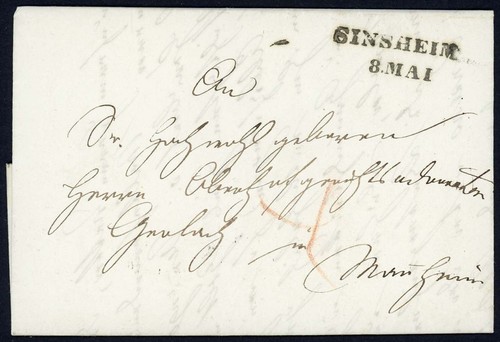 SINSHEIM
8.MAI
An
Sr. Hochwohlgeboren
Herrn Oberhofgerichtsadvocaten
Gerlach in
Mannheim